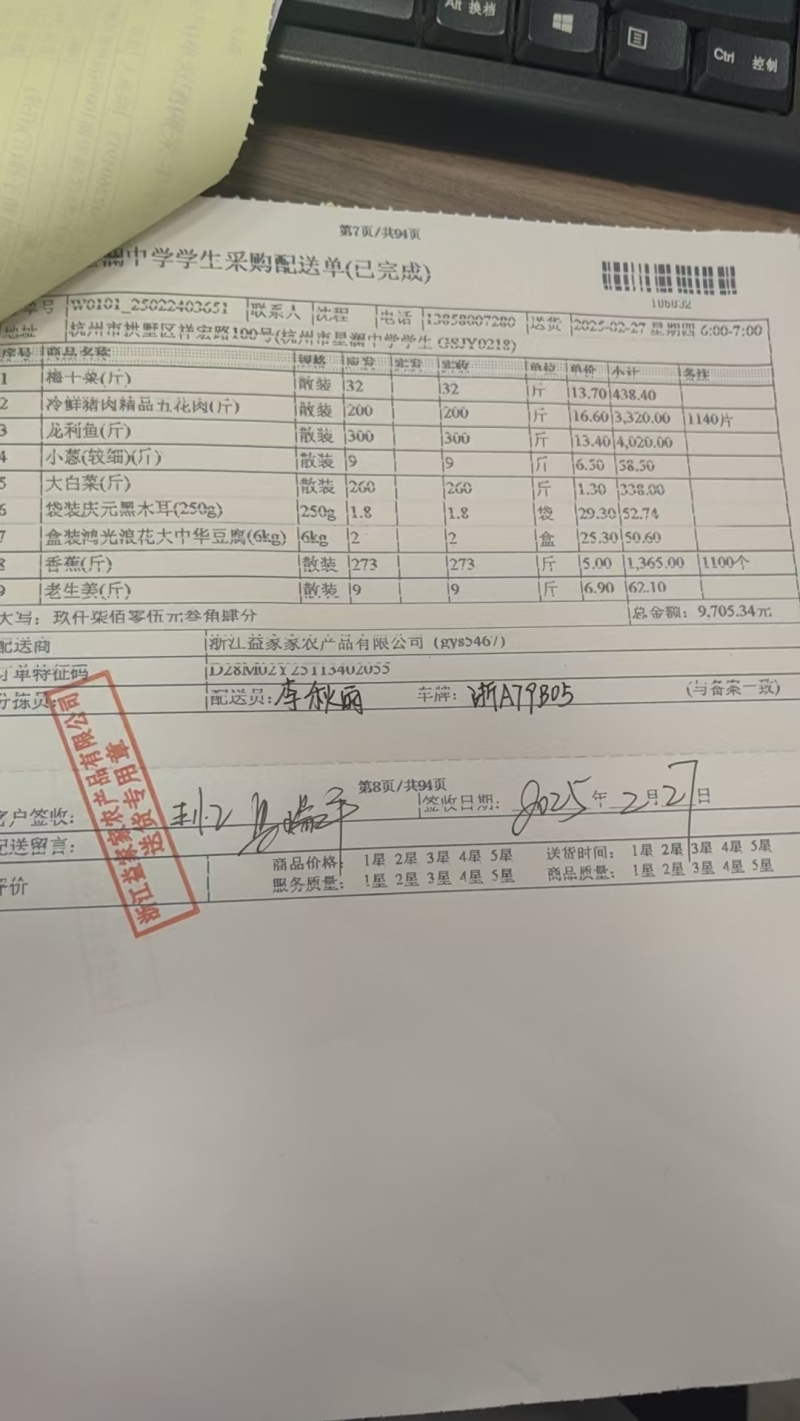 Alt 换档
Ctrl 控制
第7页/共94页
澜中学学生采购配送单(已完成)
106032
单号 W0101_25022403651 联系人 沈程 电话 13858007280 送货 2025-02-27 星期四 6:00-7:00
地址 杭州市拱墅区祥宏路100号(杭州市星澜中学学生 GSJY0218)
序号 商品名称 规格 实发 实收 单位 单价 小计 备注
1 梅干菜(斤) 散装 32 32 斤 13.70 438.40
2 冷鲜猪肉精品五花肉(斤) 散装 200 200 斤 16.60 3,320.00 1140片
3 龙利鱼(斤) 散装 300 300 斤 13.40 4,020.00
4 小葱(较细)(斤) 散装 9 9 斤 6.50 58.50
5 大白菜(斤) 散装 260 260 斤 1.30 338.00
6 袋装庆元黑木耳(250g) 250g 1.8 1.8 袋 29.30 52.74
7 盒装鸿光浪花大中华豆腐(6kg) 6kg 2 2 盒 25.30 50.60
8 香蕉(斤) 散装 273 273 斤 5.00 1,365.00 1100个
9 老生姜(斤) 散装 9 9 斤 6.90 62.10
大写: 玖仟柒佰零伍元叁角肆分 总金额: 9,705.34元
配送商 浙江益家家农产品有限公司 (gys5467)
订单特征码 D28M02Y25113402055
分拣员: 配送员: 李秋丽 车牌: 浙A79B05 (与备案一致)
浙江益家家农产品有限公司
送货专用章
第8页/共94页
客户签收: 签收日期: 2025年2月27日
配送留言:
评价 商品价格: 1星 2星 3星 4星 5星 送货时间: 1星 2星 3星 4星 5星
服务质量: 1星 2星 3星 4星 5星 商品质量: 1星 2星 3星 4星 5星